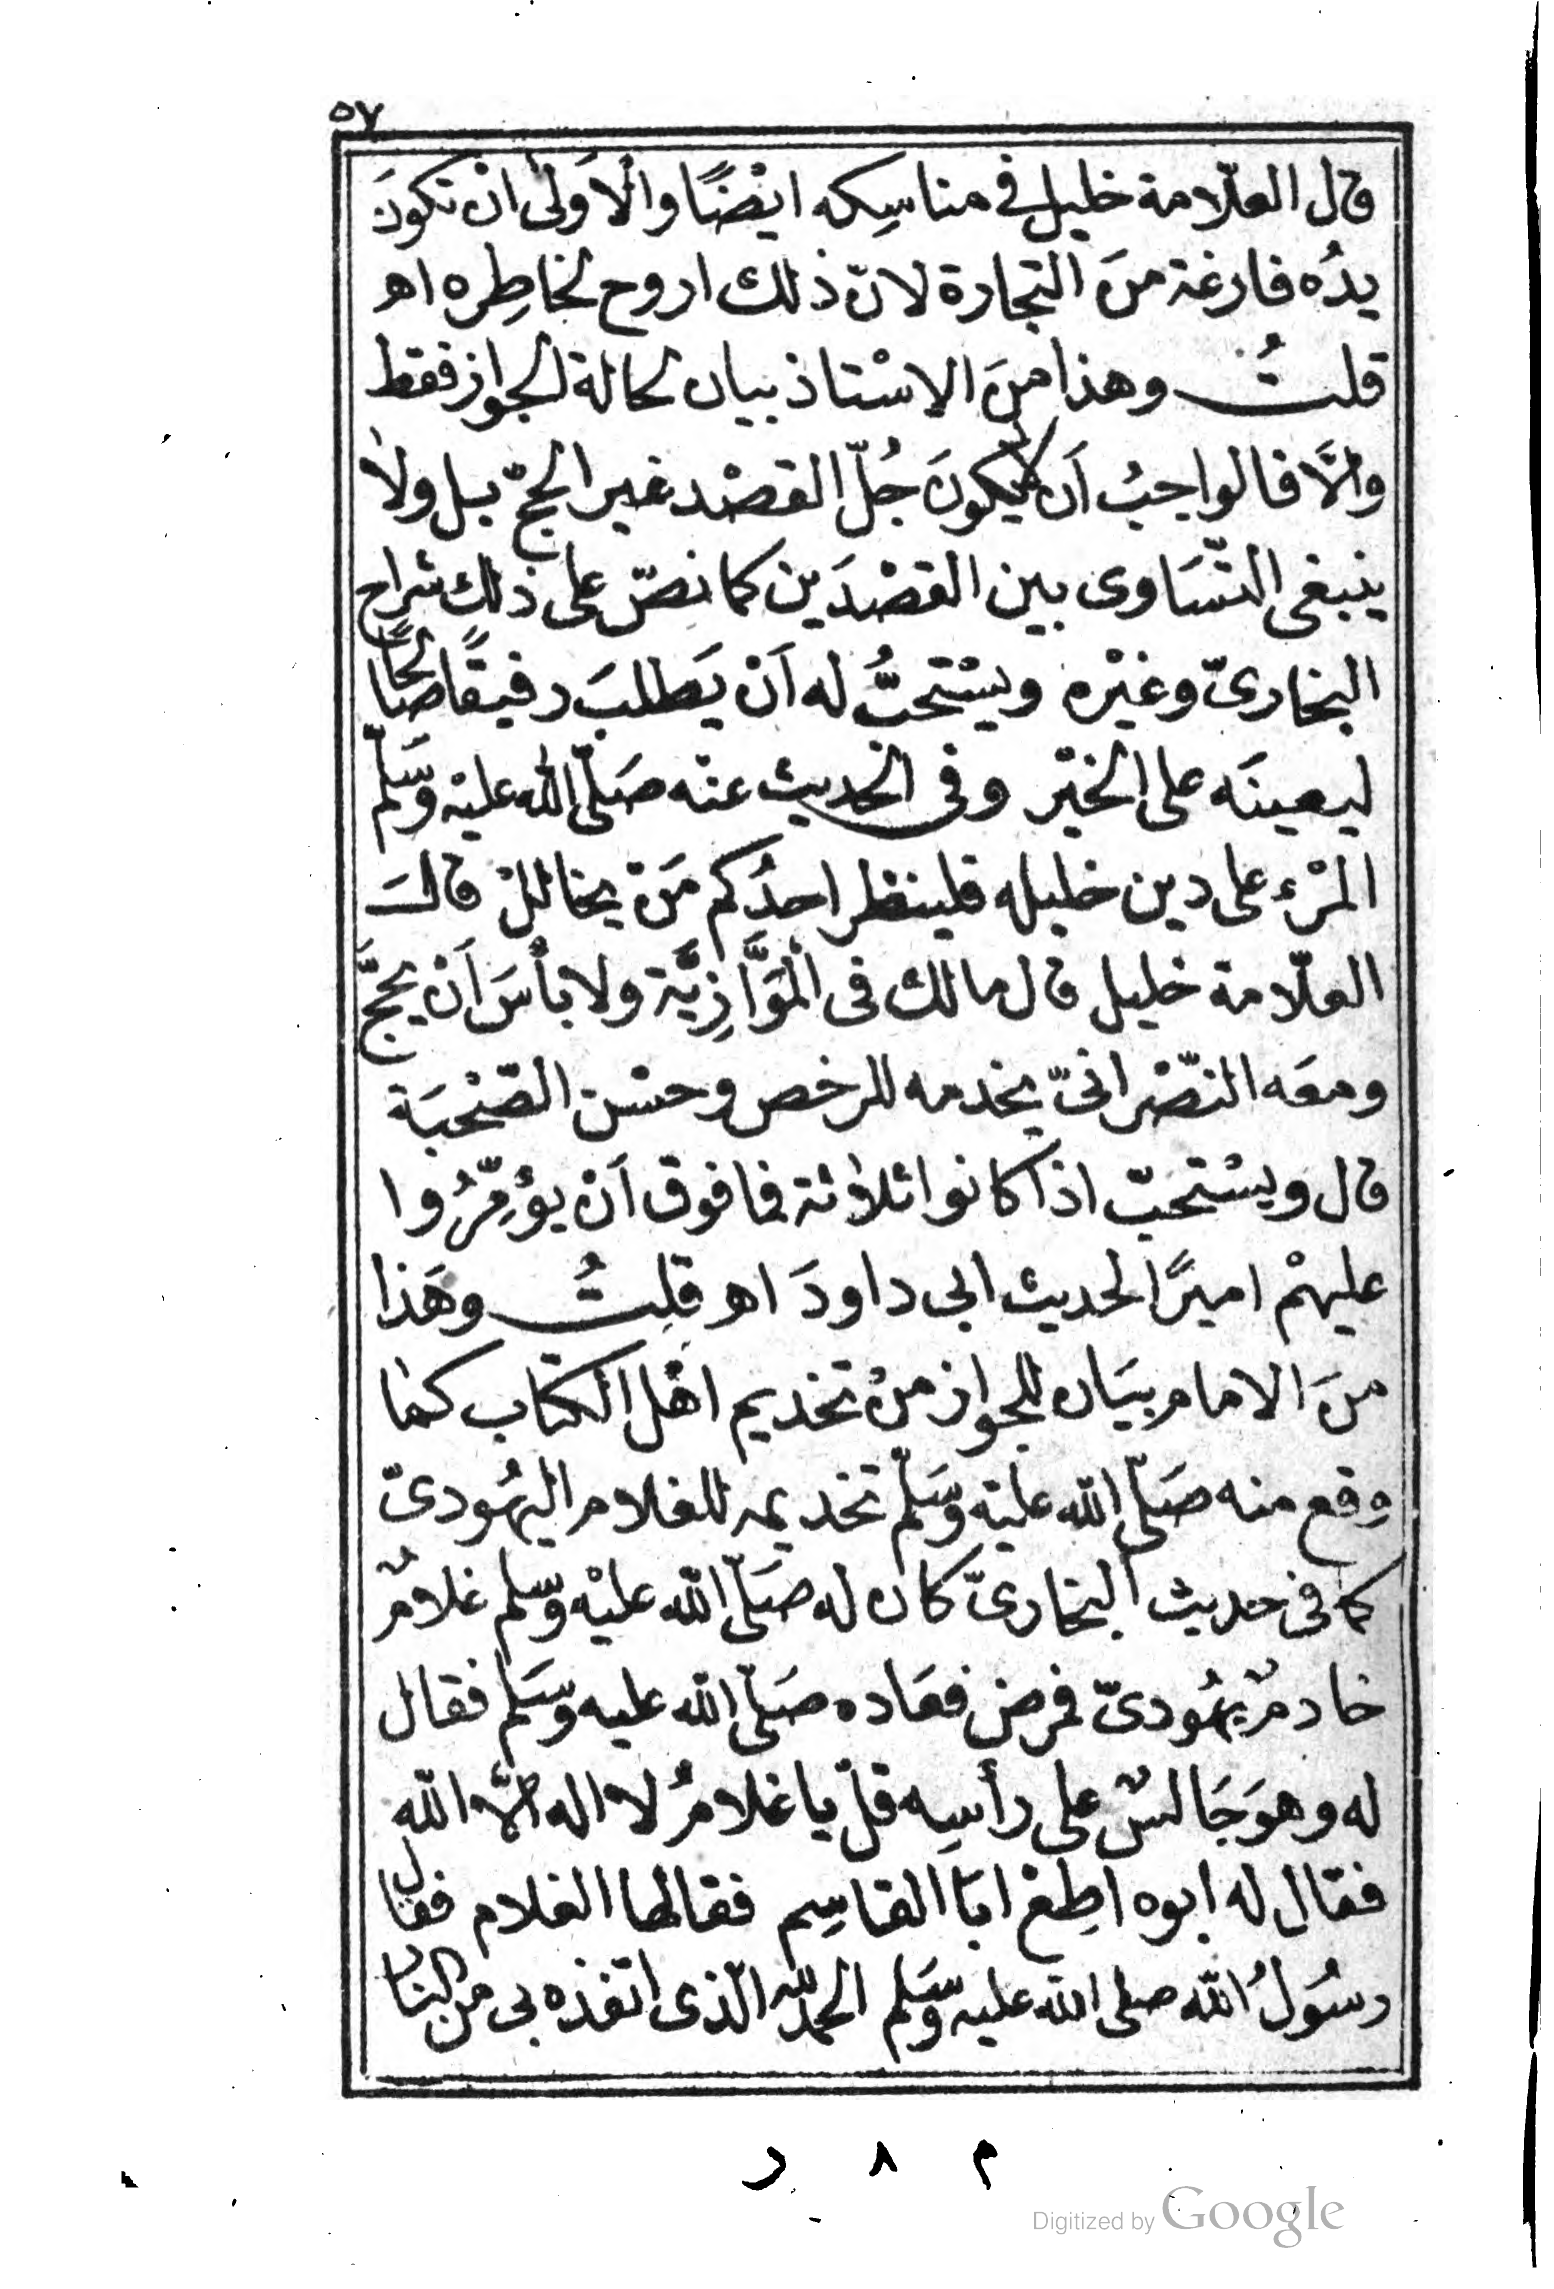 ٥٧
قال العلّامة خليل في مناسِكه ايْضًا والْاَوْلى انْ تكونَ
يدُه فارغة منَ التجارة لانّ ذلك اروح لخاطِره اهـ
قلتُ وهذا منَ الاسْتاذ بيان لحالة الجواز فقط
والَّا فالواجبُ اَن لا يكونَ جُلّ القصْد غير الحجّ بل ولا
ينبغى التّسَاوى بين القصْدَين كما نصّ على ذلك شراح
البخارىّ وغيْره ويسْتحبُّ له اَنْ يَطلبَ رفيقًا صالحًا
ليعينَه على الخيْر وفى الحديث عنْه صَلّى الله عليْه وَسَلّم
المرْء على دين خليله فلينظر احدُكم مَنْ يخاللْ قالَ
العلّامة خليل قال مالك فى الْمَوَّازِيَّة ولا بأسَ اَنْ يحجَّ
ومعَه النّصْرانىّ يخدمه للرخص وحسْن الصّحْبَة
قال ويسْتحبّ اذا كانوا ثلاثة فما فوق اَنْ يؤمِّرُوا
عليهمْ اميرًا لحديث ابى داودَ اهـ قلتُ وهَذا
منَ الامام بيَان للجواز منْ تخديم اهْل الكتاب كما
وقع منه صَلّى الله عليْه وَسَلّم تخديمه للغلام اليهُودىّ
كما فى حديث البخارىّ كان له صَلّى الله عليْه وسلم غلامٌ
خادمٌ يهُودىّ فمرض فعَاده صَلّى الله عليه وَسَلم فقال
له وهوَ جَالسٌ على رأسِه قلْ يا غلامُ لا اله الّا الله
فقال له ابوه اطِعْ ابَا القاسِم فقالها الغلام فقال
رسُولُ الله صلى الله عليه وَسَلم الحمد لله الّذى انقذه بى من النار
م ٨ ر
Digitized by Google